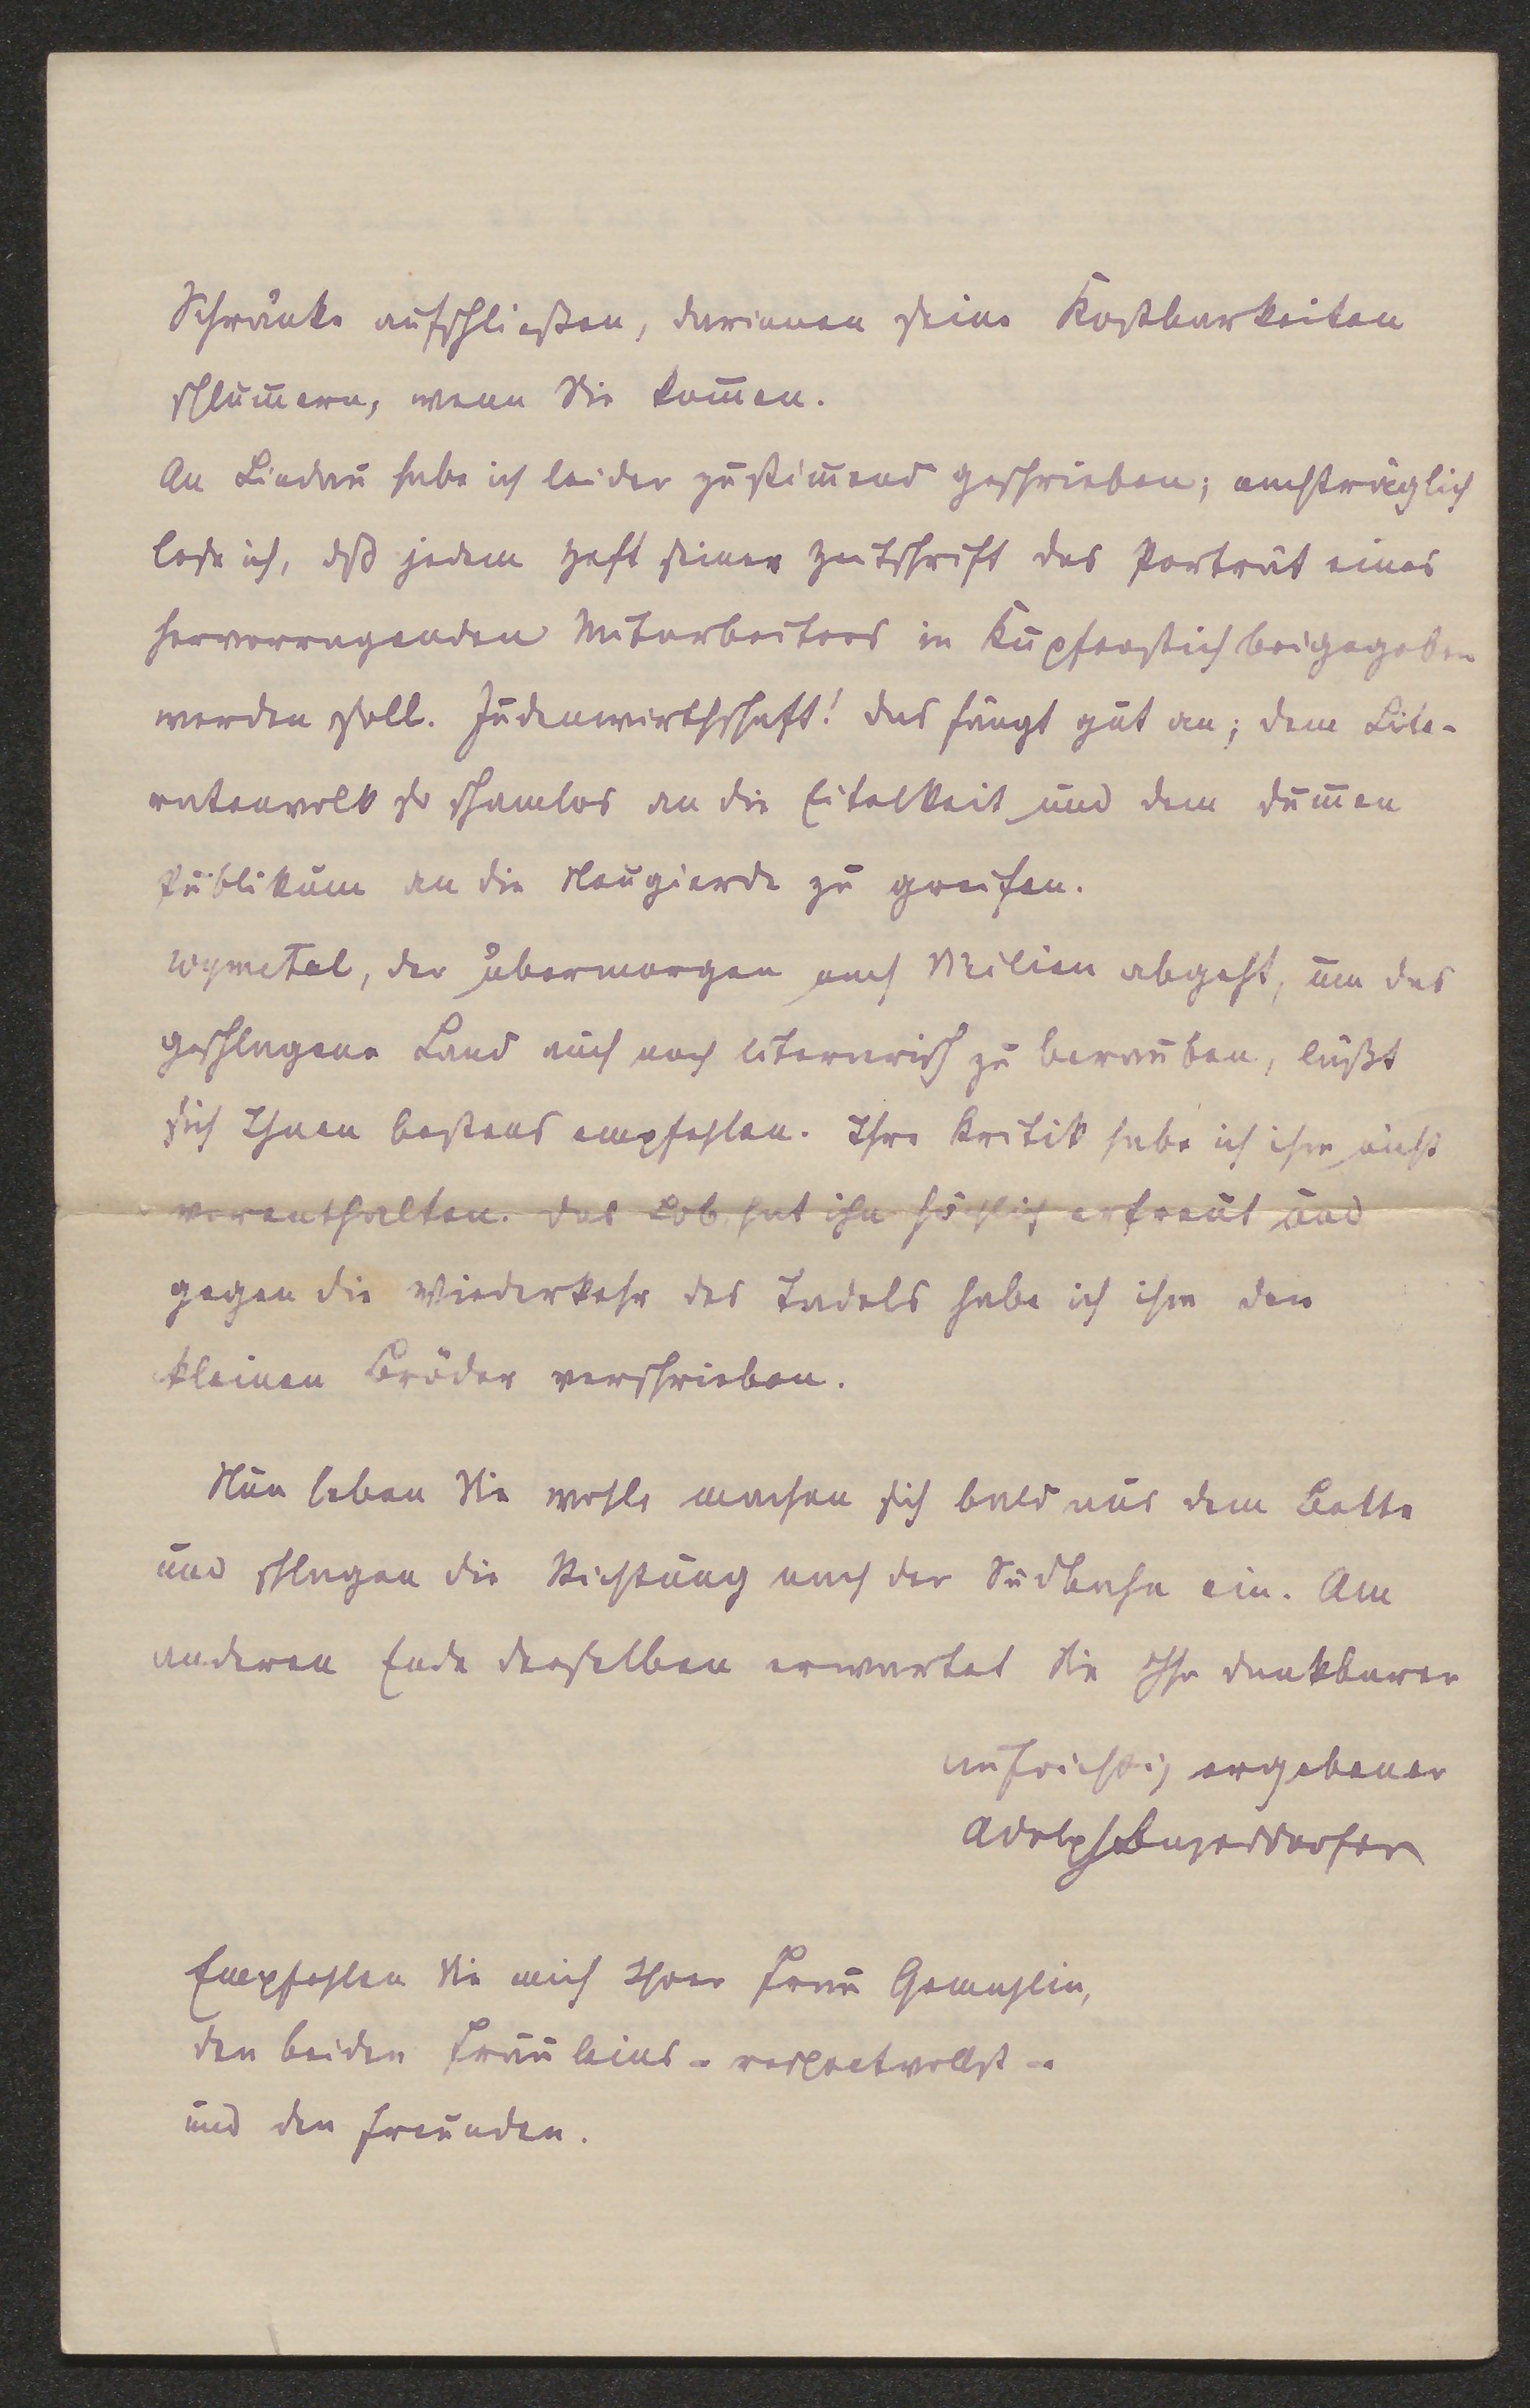 Schränke aufschließen, darinnen seine Kostbarkeiten
schlum̄ern, wenn Sie kom̄en.
An Lindau habe ich leider zustim̄end geschrieben; nachträglich
lese ich, dß jedem Heft seiner Zeitschrift das Porträt eines
hervorragenden Mitarbeiters in Kupferstich beigegeben
werden soll. Judenwirthschaft! das fängt gut an; dem Lite-
ratenvolk so schamlos an die Eitelkeit und dem dum̄en
Publikum an die Neugierde zu greifen.
Wymetal, der übermorgen nach Sicilien abgeht, um das
geschlagene Land auch noch literarisch zu berauben, läßt
sich Ihnen bestens empfehlen. Ihre Kritik habe ich ihm nicht
vorenthalten. das Lob hat ihn höchlich erfreut und
gegen die Wiederkehr des Tadels habe ich ihm den
kleinen Bröder verschrieben.
Nun leben Sie wohl, machen sich bald aus dem Bette
und schlagen die Richtung nach der Südbahn ein. Am
anderen Ende derselben erwartet Sie Ihr dankbarer
aufrichtig ergebener
Adolph Bayersdorfer
Empfehlen Sie mich Ihrer Frau Gemahlin,
den beiden Fräuleins - respectvollst -
und den Freunden.